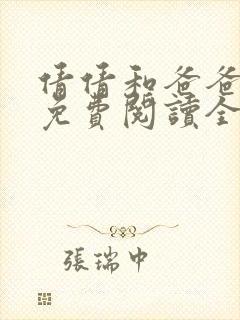 倩倩和爸爸
免費閱讀全
張瑞中